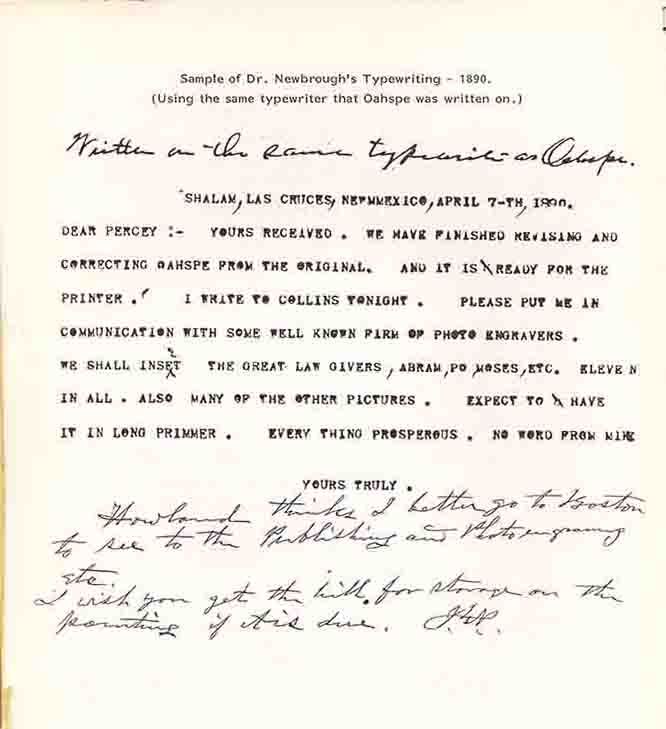 Sample of Dr. Newbrough's Typewriting - 1890.
(Using the same typewriter that Oahspe was written on.)
Written on the same typewriter as Oahspe.
SHALAM, LAS CRUCES, NEWMMEXICO, APRIL 7-TH, 1890.
DEAR PERCEY :- YOURS RECEIVED . WE HAVE FINISHED REVISING AND
CORRECTING OAHSPE FROM THE ORIGINAL. AND IT IS READY FOR THE
PRINTER . I WRITE TO COLLINS TONIGHT . PLEASE PUT ME IN
COMMUNICATION WITH SOME WELL KNOWN FIRM OF PHOTO ENGRAVERS .
WE SHALL INSET THE GREAT LAW GIVERS , ABRAM, PO MOSES, ETC. ELEVEN
IN ALL . ALSO MANY OF THE OTHER PICTURES . EXPECT TO HAVE
IT IN LONG PRIMMER . EVERY THING PROSPEROUS . NO WORD FROM
YOURS TRULY .
Howland thinks I better go to Boston
to see to the Publishing and Photo engraving
etc.
I wish you get the bill for storage on the
painting if it is due.